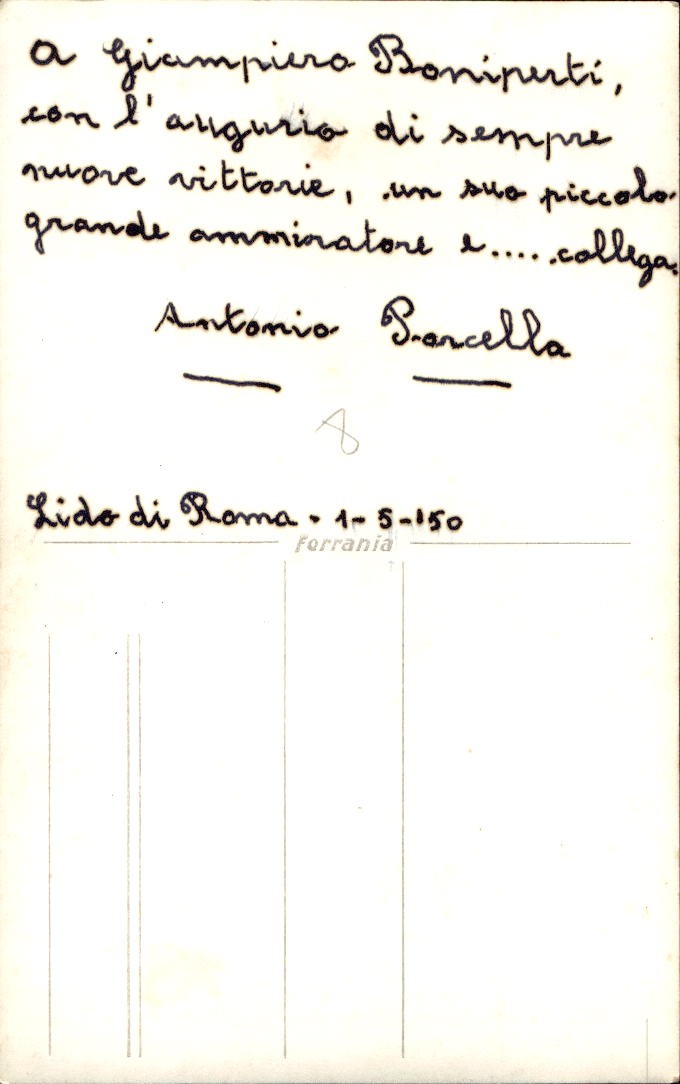 a Giampiero Boniperti,
con l'augurio di sempre
nuove vittorie, un suo piccolo
grande ammiratore e.....collega.
Antonio Porcella
8
Lido di Roma - 1-5-'50
Ferrania